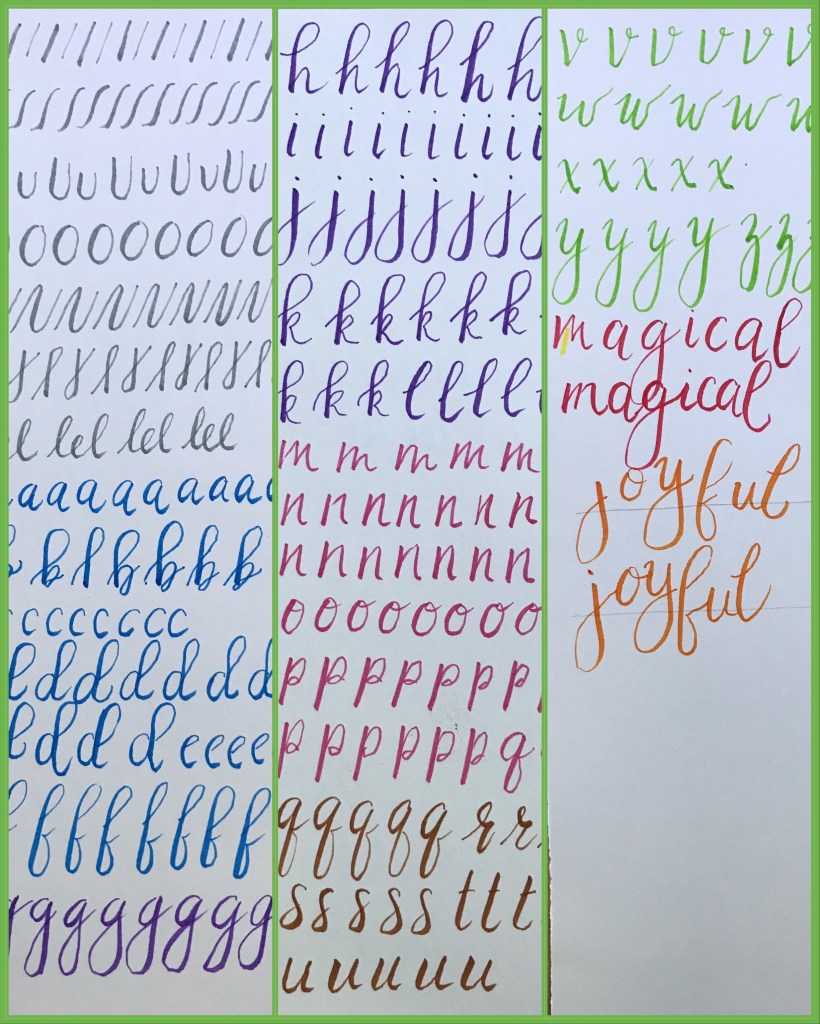 u U u U u U u U u
O O O O O O O O
lel lel lel
a a a a a a a a
b b l b b b b
c c c c c c c c
d d d d d d
d d d e e e e
f f f f f f f
g g g g g g g g
h h h h h h
i i i i i i i i i
j j j j j j j j
k k k k k k
k k k l l l l
m m m m m
n n n n n n n
n n n n n n n
o o o o o o o o
p p p p p p p
p p p p p p q
q q q q q r r
s s s s s t t t
u u u u u u
v v v v v v
w w w w w
x x x x x
y y y y z z z
magical
magical
joyful
joyful